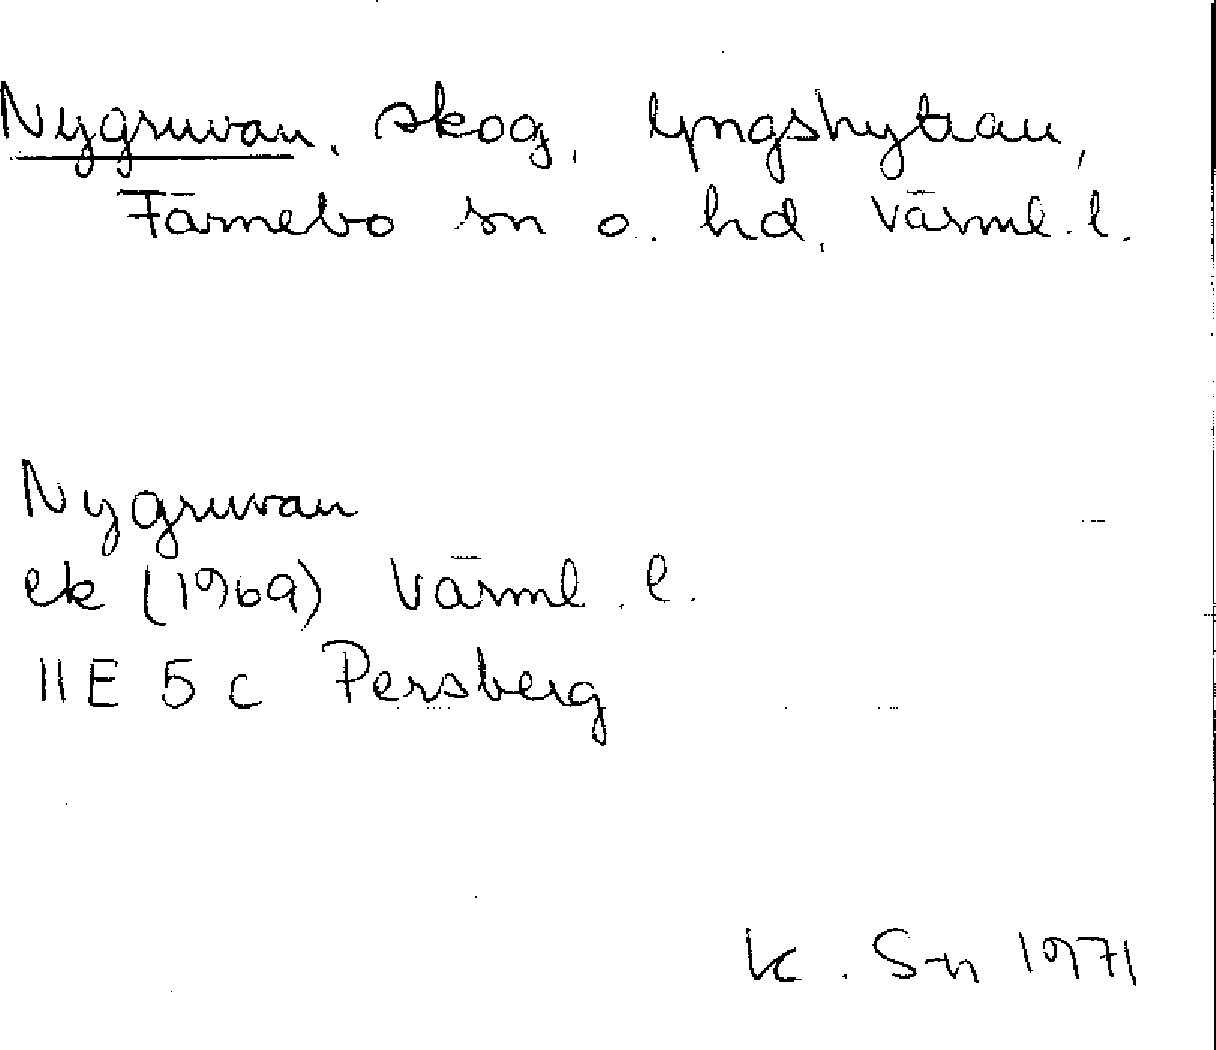 Nygruvan, skog, lyngshyttan,
Färnebo sn o. hd, Värml. l.
Nygruvan
ek (1969) Värml. l.
11E 5c Persberg
K. S-n 1971